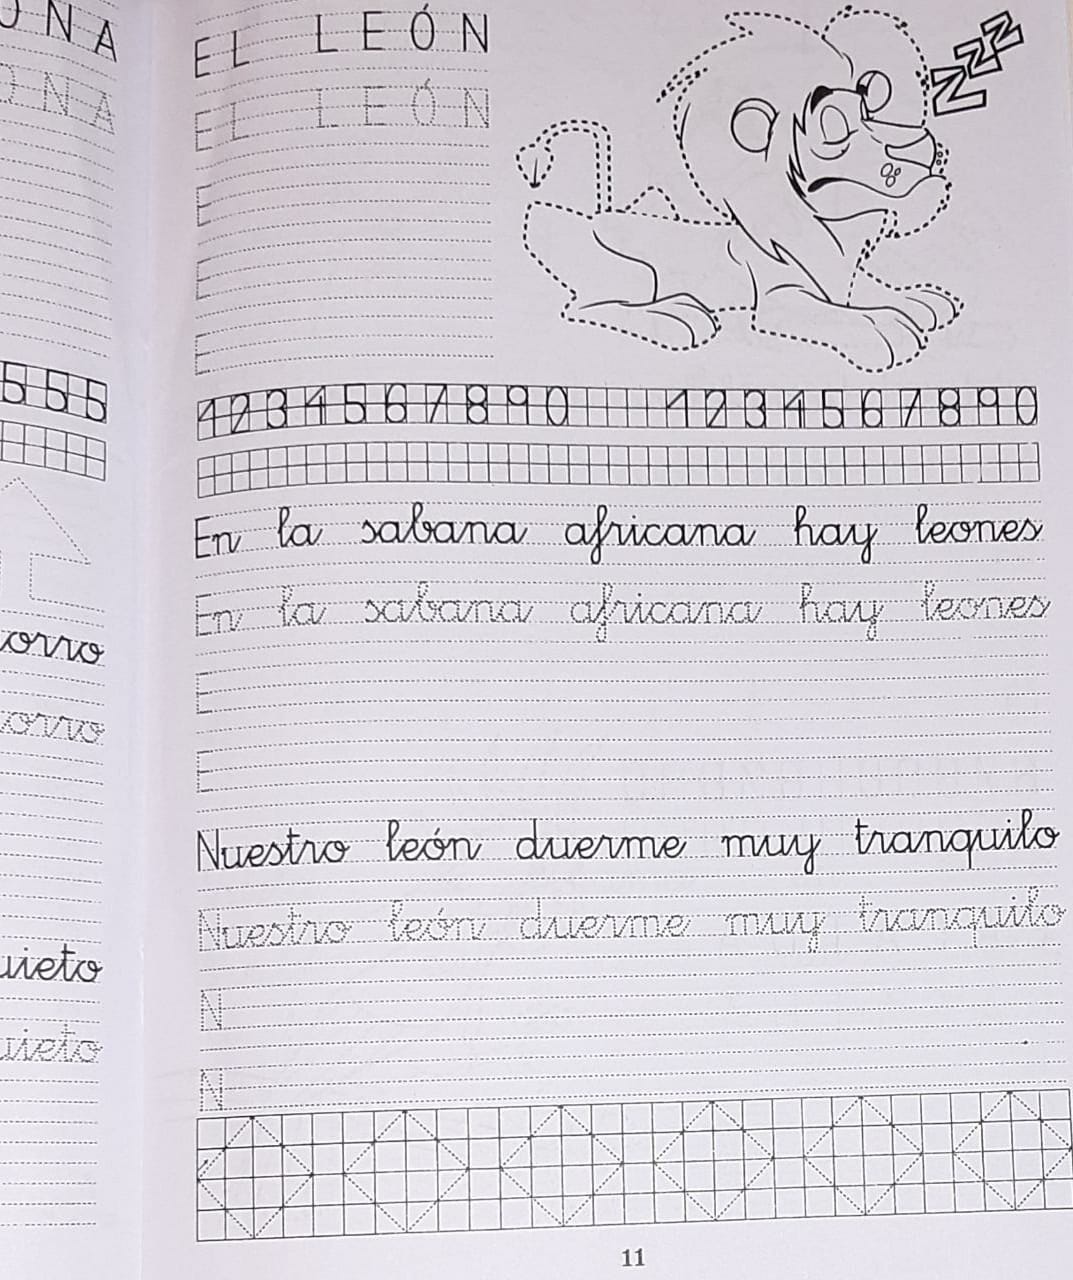 O N A
O N A
5 5 5
orro
orro
uieto
uieto
EL LEÓN
EL LEÓN
E
E
E
ZZZ
1 2 3 4 5 6 7 8 9 0 1 2 3 4 5 6 7 8 9 0
En la sabana africana hay leones
En la sabana africana hay leones
E
E
Nuestro león duerme muy tranquilo
Nuestro león duerme muy tranquilo
N
N
11